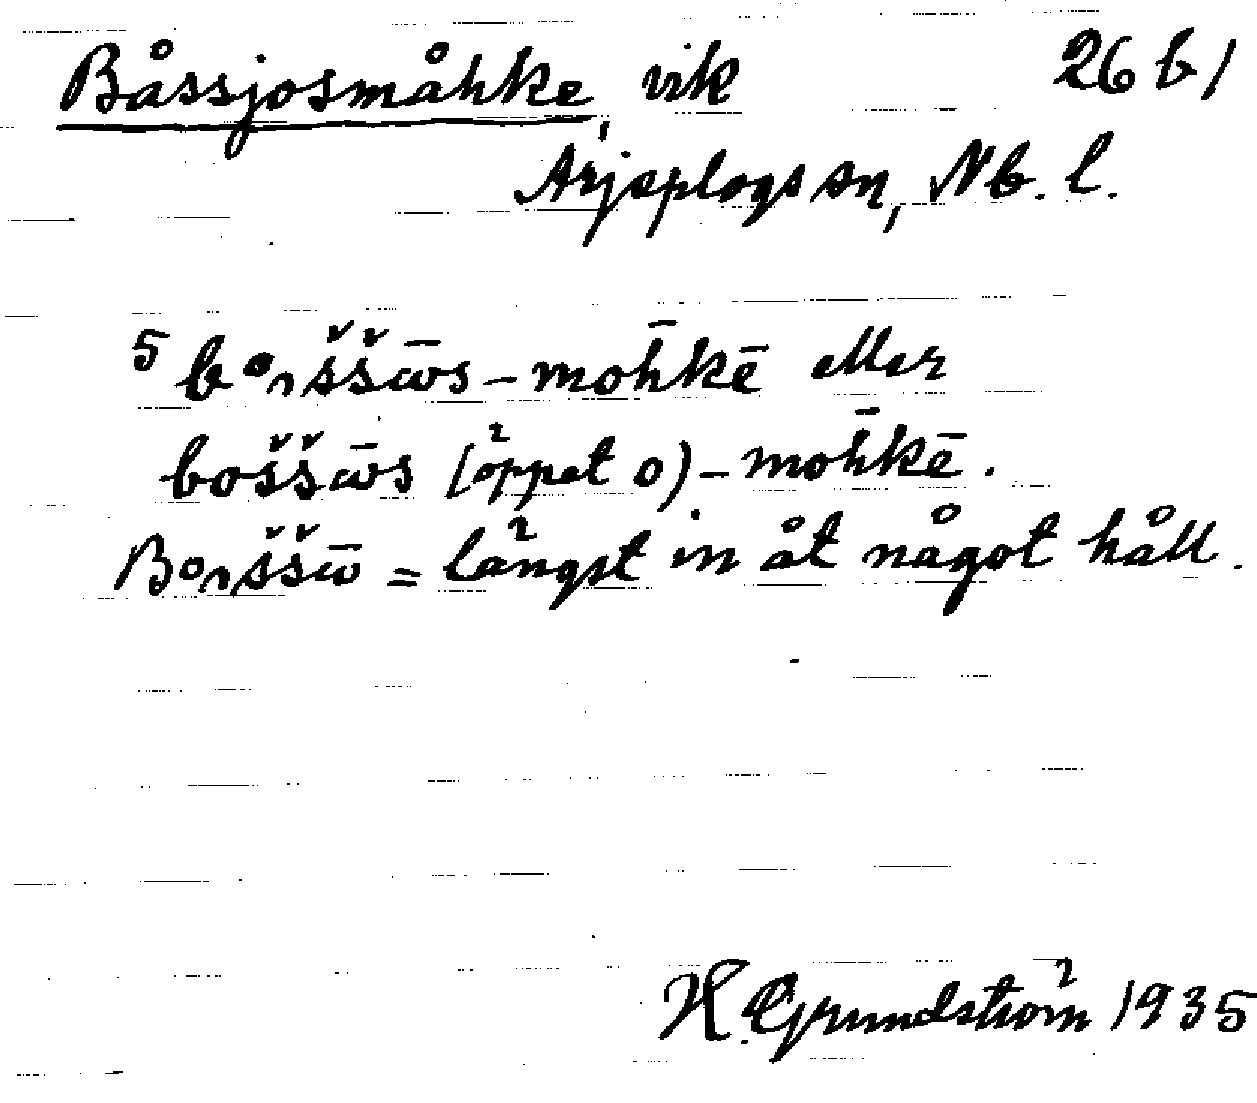 Båssjosmåhke, vik 26 b 1
Arjeplogs sn, Nb. l.
5 bºršša̅s-moh̄kē eller
boššω̄s (öppet o)-moh̄kē.
längst in åt något håll.
H. Grundström 1935